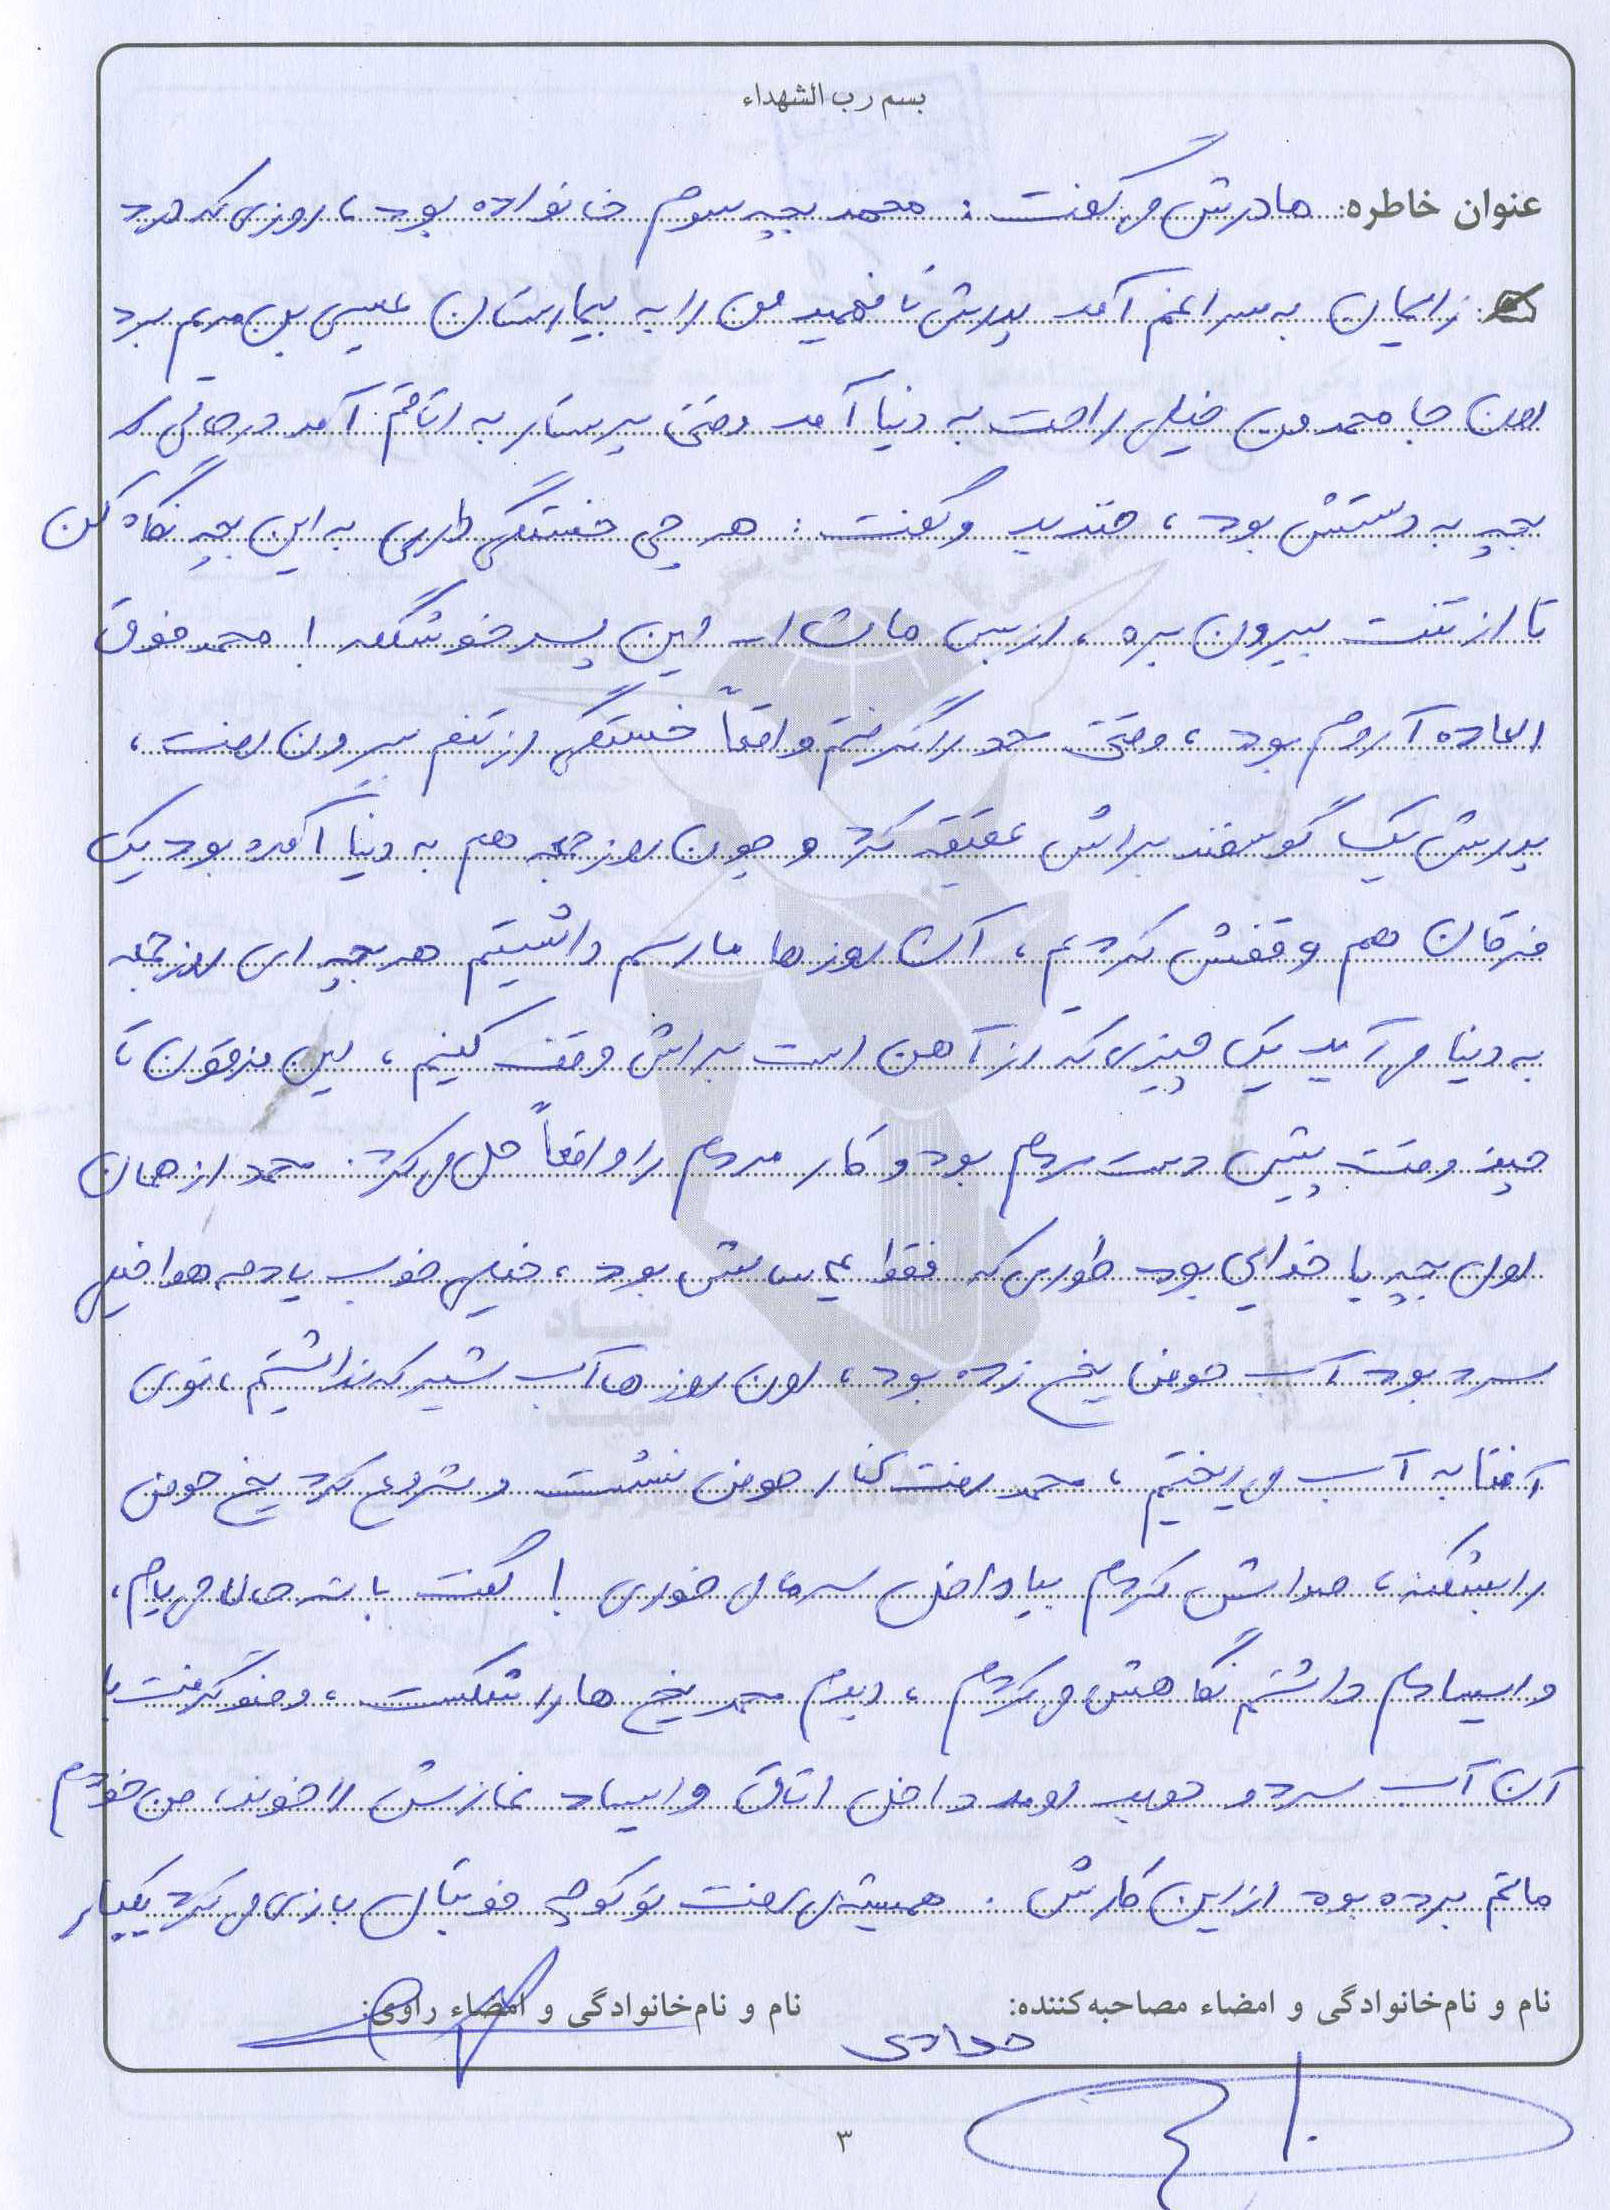 بسم رب الشهداء
عنوان خاطره: مادرش می گفت: محمد بچه سوم خانواده بود، روزی که درد
زایمان به سراغم آمد پدرش تا فهمید من را به بیمارستان عیسی بن مریم برد
اون جا محمد من خیلی راحت به دنیا آمد وقتی پرستار به اتاقم آمد در حالی که
بچه به دستش بود، خندید و گفت: هر چی خستگی داری به این بچه نگاه کن
تا از تنت بیرون بره، از بس ماشاا... این پسر خوشگله! محمد فوق
العاده آروم بود، وقتی محمد را گرفتم واقعاً خستگی از تنم بیرون رفت،
پدرش یک گوسفند براش عقیقه کرد و چون روز جمعه هم به دنیا آمده بود یک
فرقان هم وقفش کردیم، آن روز ها ما رسم داشتیم هر بچه ای روز جمعه
به دنیا می آید یک چیزی که از آهن است براش وقف کنیم، این فرقون تا
چند وقت پیش دست مردم بود و کار مردم را واقعاً حل می کرد. محمد از همان
اول بچه با خدایی بود طوری که فقط سالش بود، خیلی خوب یادمه هوا خیلی
سرد بود آب حوض یخ زده بود، اون روز ها آب شیر که نداشتیم، توی
آفتابه آب می ریختیم، محمد رفت کنار حوض نشست و شروع کرد یخ حوض
را بشکنه، صدایش کردم بیا داخل سرما می خوری! گفت باشه حالا می یام،
وایسادم داشتم نگاهش می کردم، دیدم محمد یخ ها را شکست، وضو گرفت با
آن آب سرد و اومد داخل اتاق وایساد نمازش را خوند، من خودم
ماتم برده بود از این کارش. همیشه می رفت تو کوچه فوتبال بازی می کرد یکبار
نام و نام خانوادگی و امضاء مصاحبه کننده:
نام و نام خانوادگی و امضاء راوی:
۳